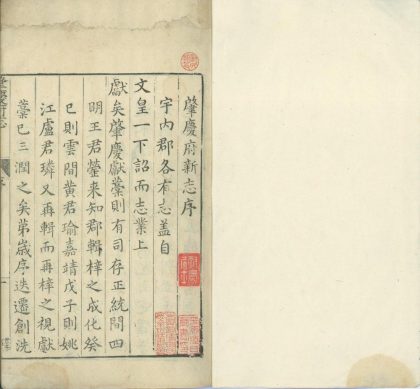 肇慶府新志序
宇內郡各有志蓋自
文皇一下詔而志業上
獻矣肇慶獻藁則有司存正統間四
明王君瑩来知郡輯梓之成化癸
巳則雲間黃君瑜嘉靖戊子則姚
江盧君璘又再輯而再梓之視獻
藁已三潤之矣苐歲序迭遷創洗